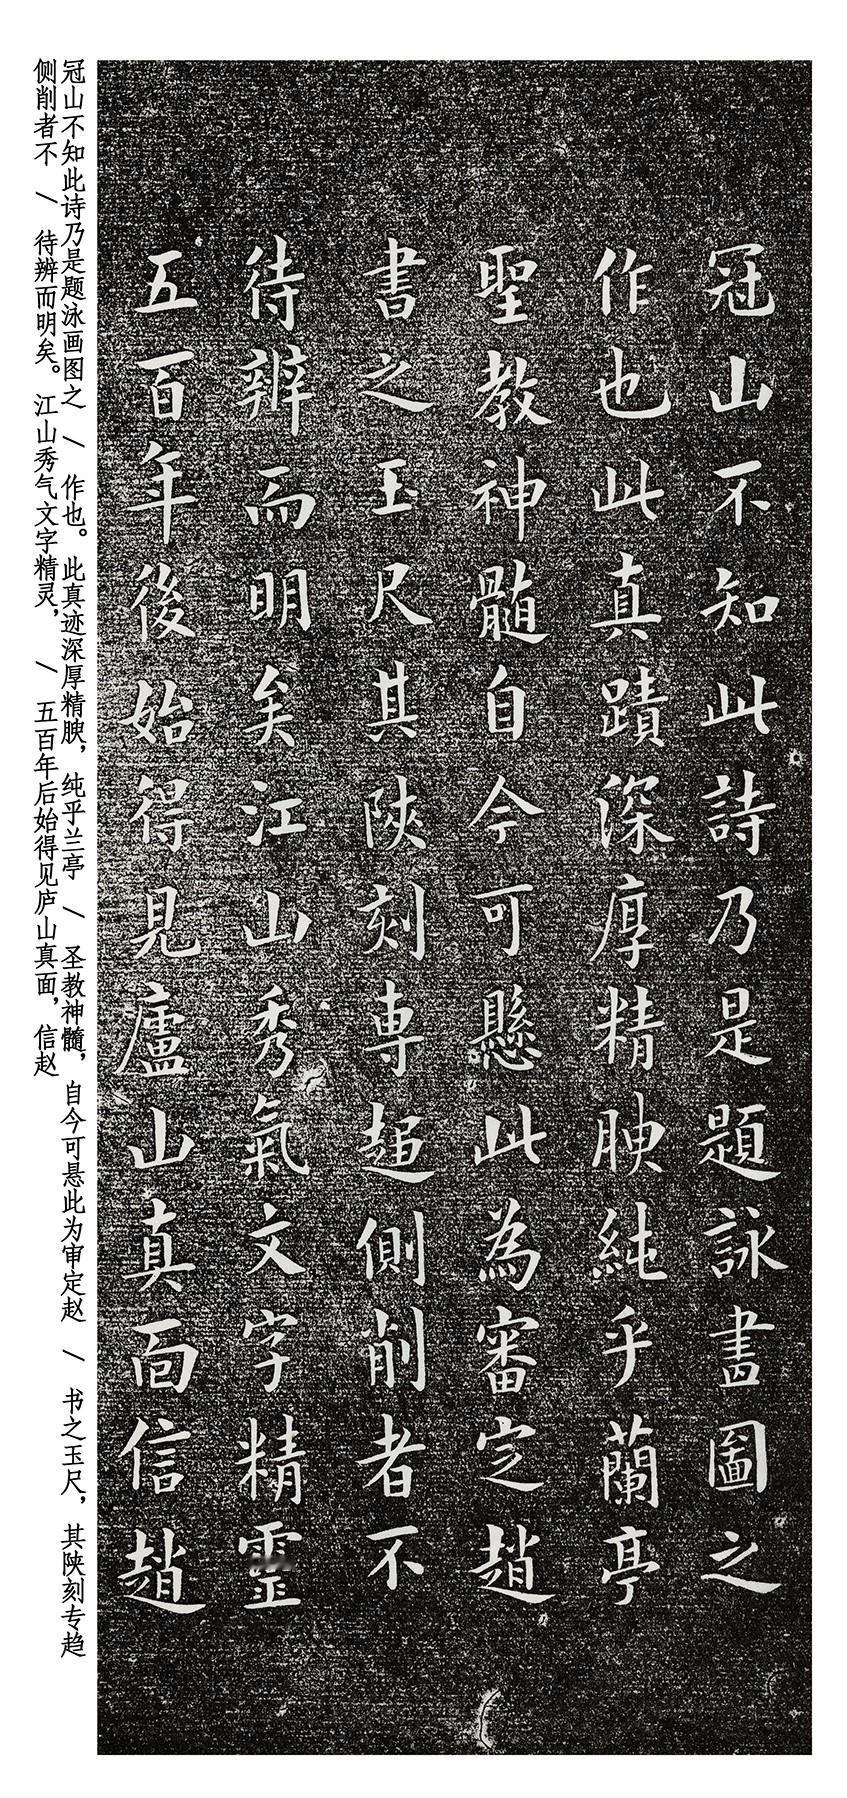 冠山不知此詩乃是題詠畵圖之
作也此真蹟深厚精腴純乎蘭亭
聖教神髓自今可懸此為審定趙
書之玉尺其陝刻専趨側削者不
待辨而明矣江山秀氣文字精靈
五百年後始得見廬山真面信趙
冠山不知此诗乃是题泳画图之 / 作也。此真迹深厚精腴，纯乎兰亭 / 圣教神髓，自今可悬此为审定赵 / 书之玉尺，其陕刻专趋
侧削者不 / 待辨而明矣。江山秀气文字精灵， / 五百年后始得见庐山真面，信赵